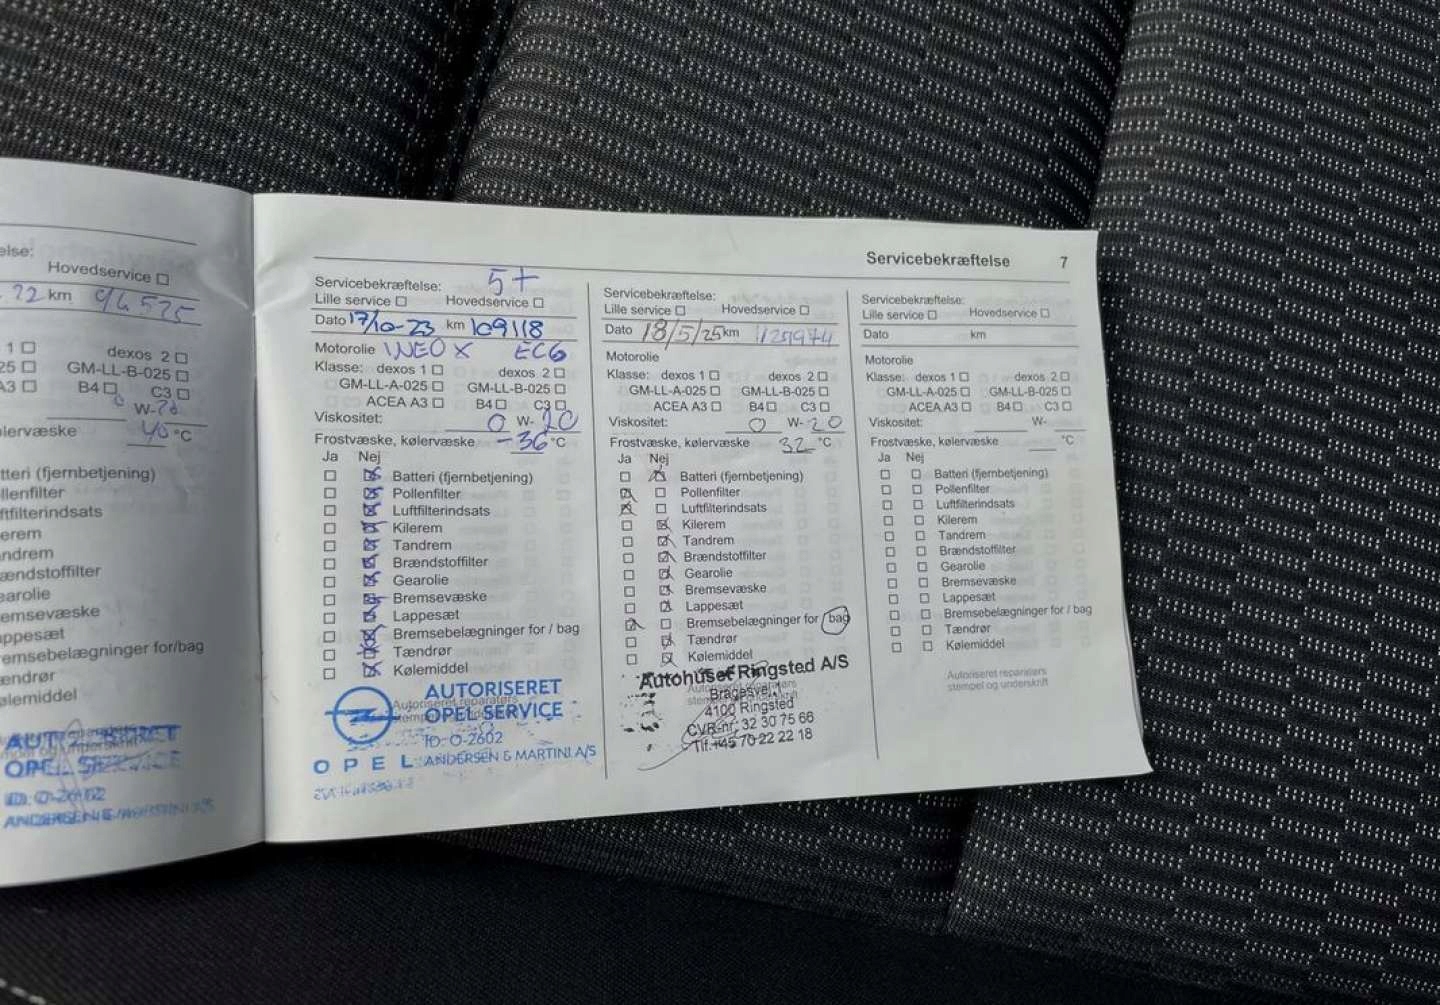 Hovedservice
22 km 94 575
1
dexos 2
25
GM-LL-B-025
A3
B4
C3
W-20
ølervæske
40 °C
tteri (fjernbetjening)
llenfilter
ftfilterindsats
erem
ndrem
ændstoffilter
earolie
emsevæske
ppesæt
emsebelægninger for/bag
ændrør
ølemiddel
AUTORISERET
OPEL SERVICE
ID: O-2602
ANDERSEN & MARTINI A/S
Servicebekræftelse 7
Servicebekræftelse: 5+
Lille service Hovedservice
Dato 17/10-23 km 109118
Motorolie INEO X EC6
Klasse: dexos 1 dexos 2
GM-LL-A-025 GM-LL-B-025
ACEA A3 B4 C3
Viskositet: 0 W- 20
Frostvæske, kølervæske -36 °C
Ja Nej
Batteri (fjernbetjening)
Pollenfilter
Luftfilterindsats
Kilerem
Tandrem
Brændstoffilter
Gearolie
Bremsevæske
Lappesæt
Bremsebelægninger for / bag
Tændrør
Kølemiddel
Autoriseret reparatørs
AUTORISERET
OPEL SERVICE
ID: O-2602
OPEL ANDERSEN & MARTINI A/S
Servicebekræftelse:
Lille service Hovedservice
Dato 18/5/25 km 125974
Motorolie
Klasse: dexos 1 dexos 2
GM-LL-A-025 GM-LL-B-025
ACEA A3 B4 C3
Viskositet: 0 W- 20
Frostvæske, kølervæske 32 °C
Ja Nej
Batteri (fjernbetjening)
Pollenfilter
Luftfilterindsats
Kilerem
Tandrem
Brændstoffilter
Gearolie
Bremsevæske
Lappesæt
Bremsebelægninger for / bag
Tændrør
Kølemiddel
Autohuset Ringsted A/S
Bragesvej 1
4100 Ringsted
CVR-nr: 32 30 75 66
Tlf.+45 70 22 22 18
Servicebekræftelse:
Lille service Hovedservice
Dato km
Motorolie
Klasse: dexos 1 dexos 2
GM-LL-A-025 GM-LL-B-025
ACEA A3 B4 C3
Viskositet: W-
Frostvæske, kølervæske °C
Ja Nej
Batteri (fjernbetjening)
Pollenfilter
Luftfilterindsats
Kilerem
Tandrem
Brændstoffilter
Gearolie
Bremsevæske
Lappesæt
Bremsebelægninger for / bag
Tændrør
Kølemiddel
Autoriseret reparatørs
stempel og underskrift